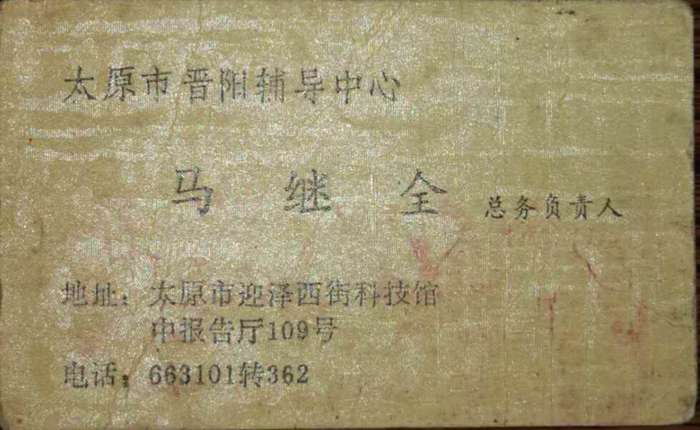 太原市晋阳辅导中心
马继全 总务负责人
地址：太原市迎泽西街科技馆
中报告厅109号
电话：663101转362